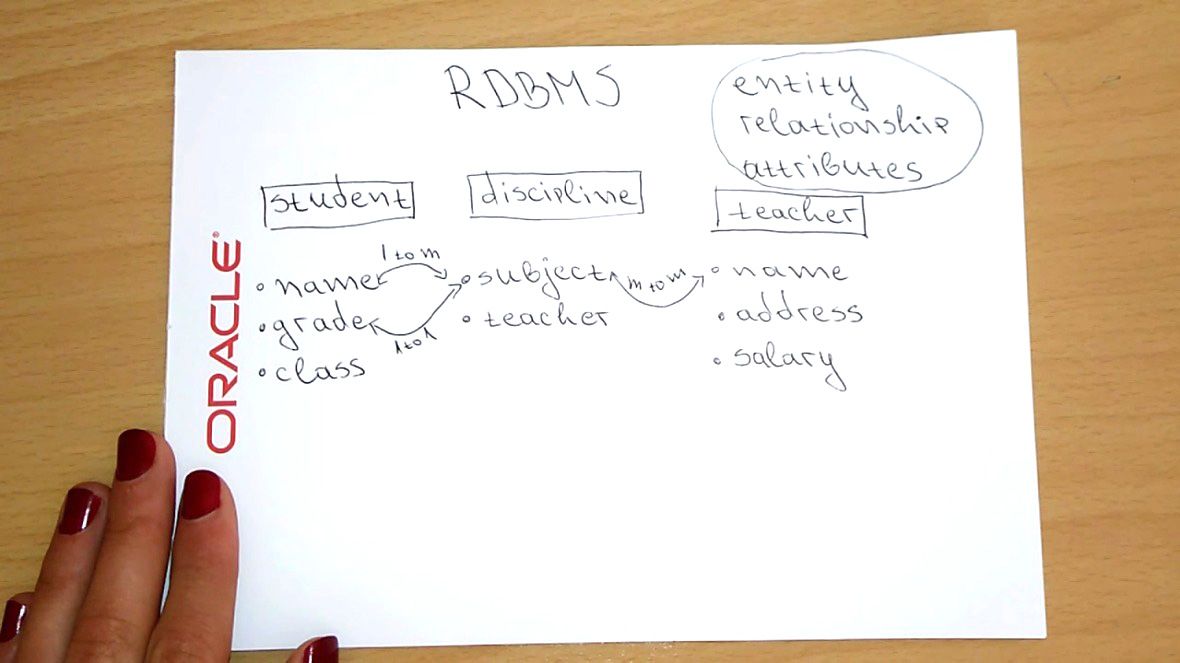 RDBMS
entity
relationship
attributes
student
discipline
teacher
1 to m
• name
• grade
• class
1 to 1
• subject
• teacher
m to m
• name
• address
• salary
ORACLE®